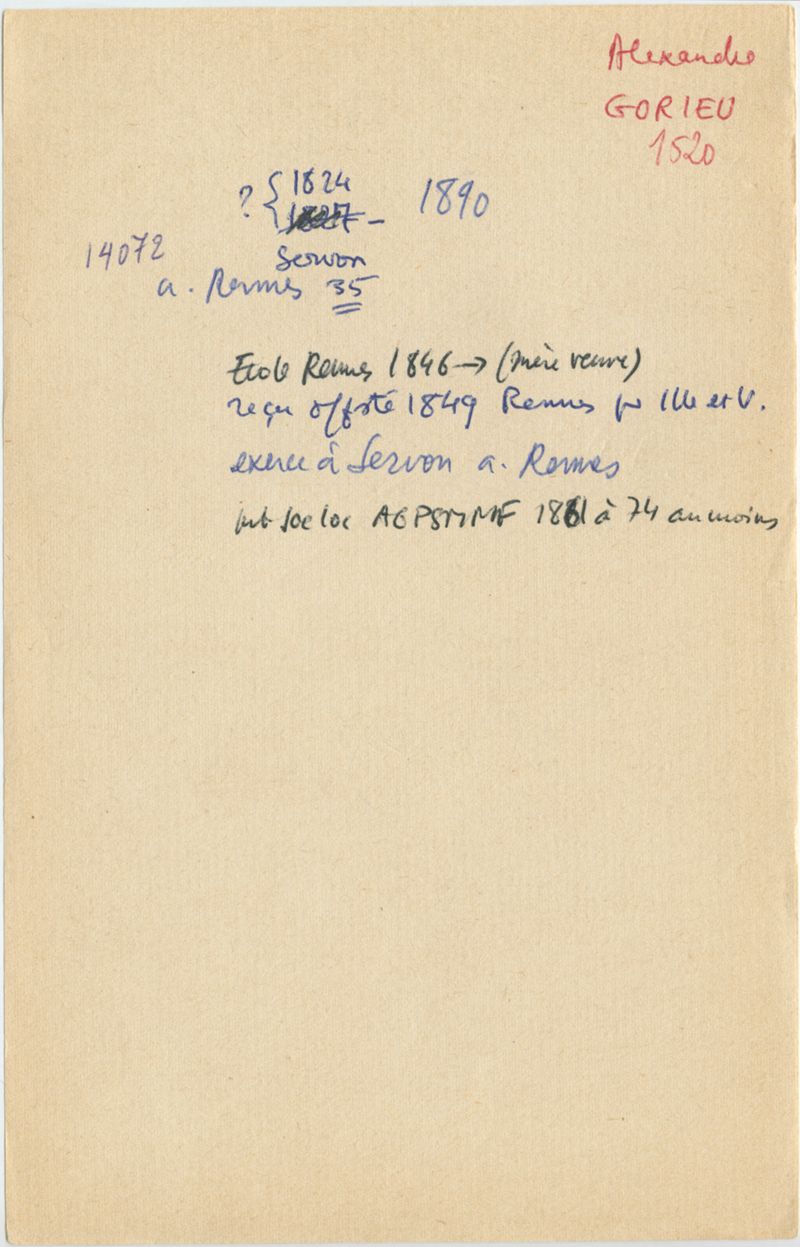 Alexandre
GORIEU
1520
? { 1824
1827 – 1890
14072
Servon
a. Rennes 35
Ecole Rennes 1846 → (mère veuve)
reçu off sté 1849 Rennes pr Ille et V.
exerce à Servon a. Rennes
mb soc loc AGPSMMF 1861 à 74 au moins